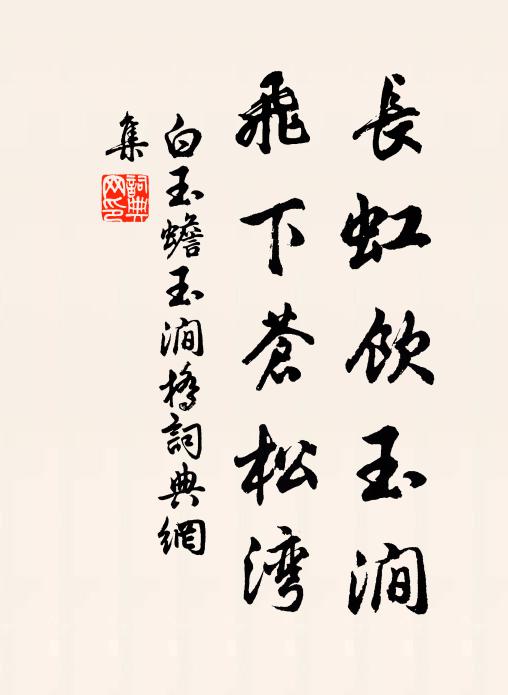 長虹飲玉澗
飛下蒼松湾
白玉蟾玉澗橋詞典網
集
詞典
网印